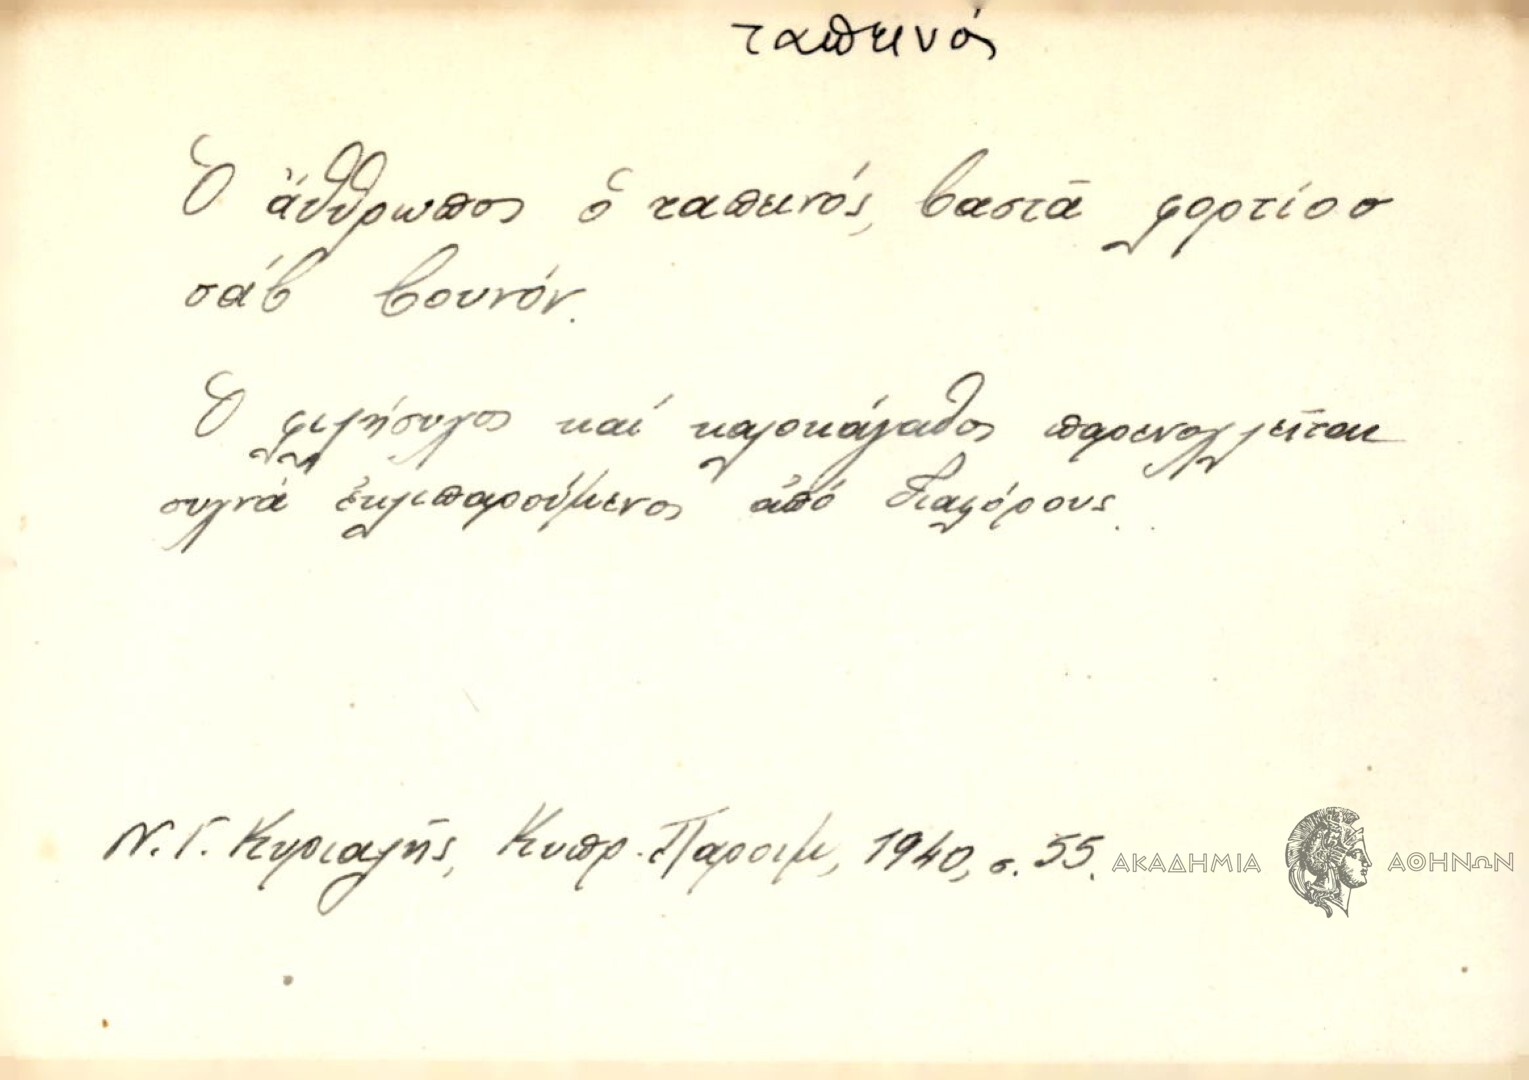 ταπεινός
Ὁ ἄθθρωπος ὁ ταπεινός, βαστᾶ φορτίοσ
σάβ βουνόν.
Ὁ φιλήσυχος καί καλοκάγαθος παρενοχλεῖται
συχνά ἐκλιπαρούμενος ἀπό διαφόρους.
Ν. Γ. Κυριαζῆς, Κυπρ. Παροιμ, 1940, σ. 55.
ΑΚΑΔΗΜΙΑ ΑΘΗΝΩΝ